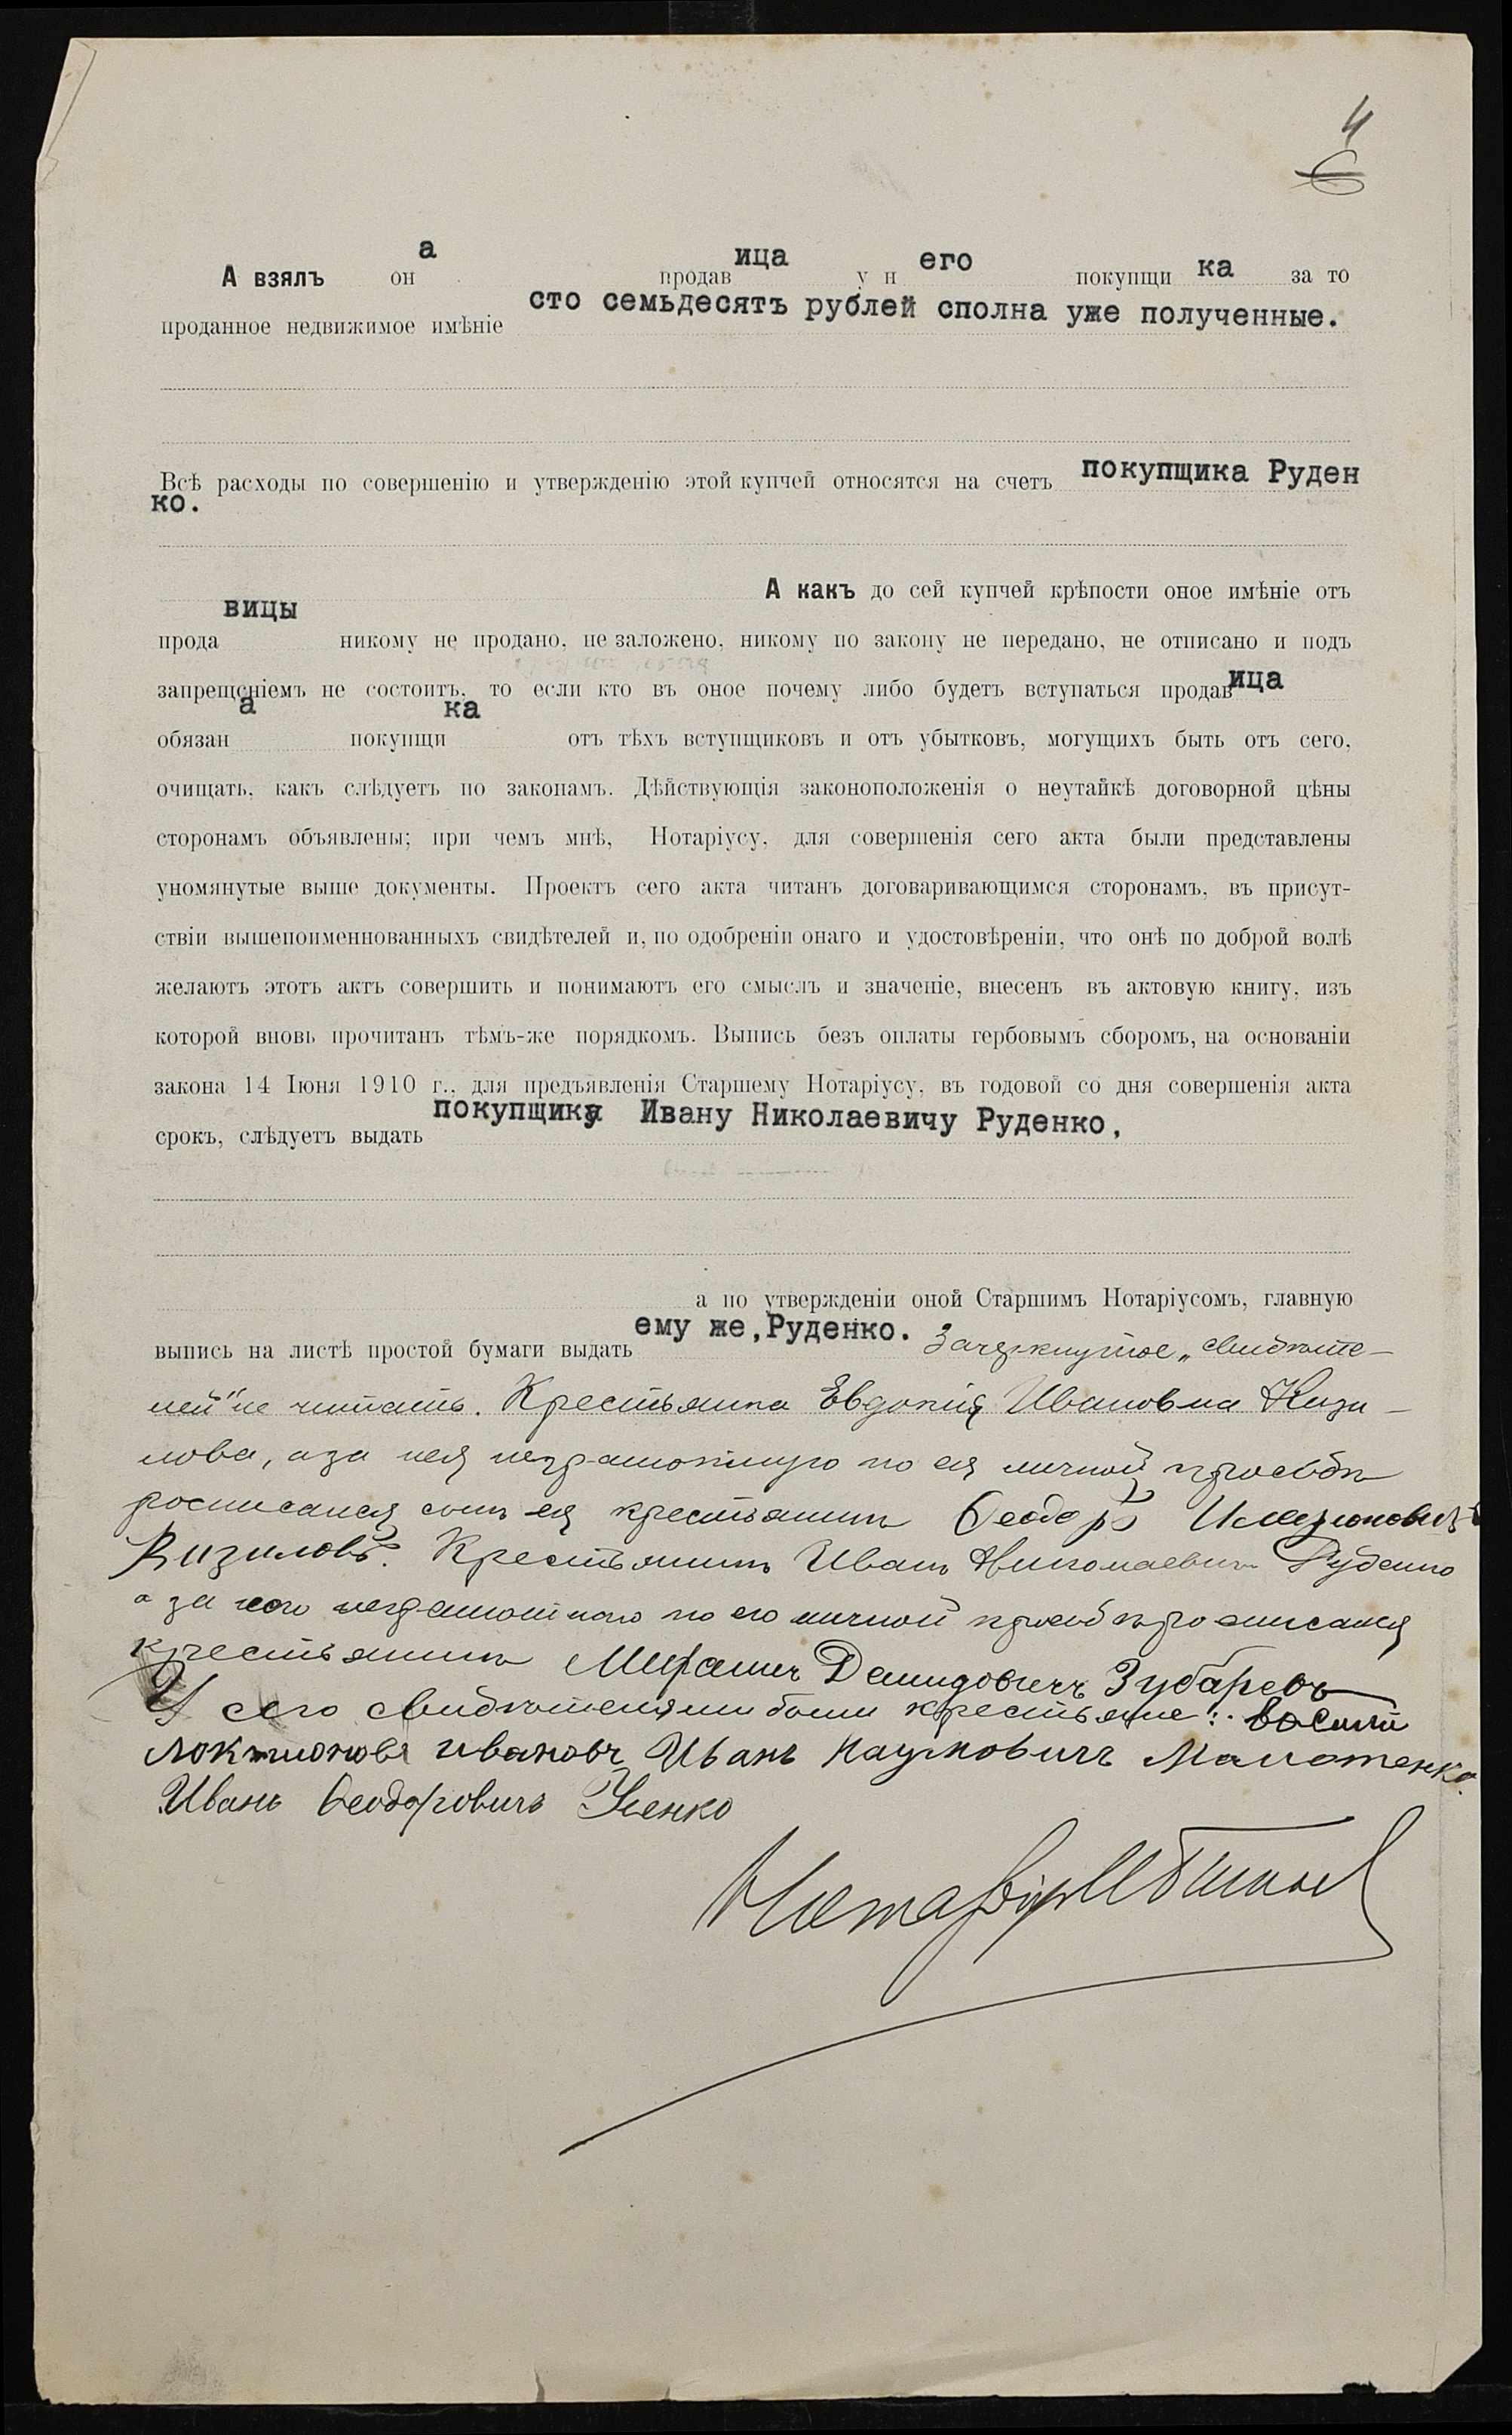 4
6
А взялъ она продавица у него покупщика за то
проданное недвижимое имѣніе сто семьдесятъ рублей сполна уже полученные.
Всѣ расходы по совершенію и утвержденію этой купчей относятся на счетъ покупщика Руден
ко.
А какъ до сей купчей крѣпости оное имѣніе отъ
продавицы никому не продано, не заложено, никому по закону не передано, не отписано и подъ
запрещеніемъ не состоитъ, то если кто въ оное почему либо будетъ вступаться продавица
обязана покупщика отъ тѣхъ вступщиковъ и отъ убытковъ, могущихъ быть отъ сего,
очищать, какъ слѣдуетъ по законамъ. Дѣйствующія законоположенія о неутайкѣ договорной цѣны
сторонамъ объявлены; при чемъ мнѣ, Нотаріусу, для совершенія сего акта были представлены
упомянутые выше документы. Проектъ сего акта читанъ договаривающимся сторонамъ, въ присут-
ствіи вышепоименнованныхъ свидѣтелей и, по одобреніи онаго и удостовѣреніи, что онѣ по доброй волѣ
желаютъ этотъ актъ совершить и понимаютъ его смыслъ и значеніе, внесенъ въ актовую книгу, изъ
которой вновь прочитанъ тѣмъ-же порядкомъ. Выпись безъ оплаты гербовымъ сборомъ, на основаніи
закона 14 Іюня 1910 г., для предъявленія Старшему Нотаріусу, въ годовой со дня совершенія акта
срокъ, слѣдуетъ выдать покупщику Ивану Николаевичу Руденко,
а по утвержденіи оной Старшимъ Нотаріусомъ, главную
выпись на листѣ простой бумаги выдать ему же, Руденко. Зачеркнутое „свидѣте-
лей" не читать. Крестьянка Евдокія Ивановна Кизи-
лова, а за нея неграмотную по ея личной просьбѣ
росписался сынъ ея крестьянинъ Ѳеодоръ
Кизиловъ. Крестьянинъ Иванъ Николаевичъ Руденко
а за него неграмотнаго по его личной просьбѣ росписался
крестьянинъ Демидовичъ Зубаревъ
У сего свидѣтелями были крестьяне: Василій
Локтионовъ Ивановъ Иванъ Наумовичъ
Иванъ Ѳеодоровичъ Усенко
Нотаріусъ